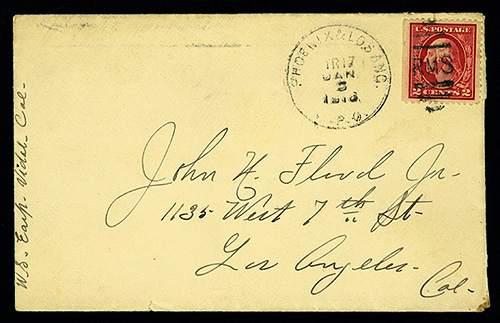 PHOENIX & LOS ANG.
TR17
JAN
3
R.P.O.
U.S. POSTAGE
RMS
2 CENTS 2
John H. Flood Jr-
1135 West 7th St-
Los Angeles-
Cal-
W.S. Earp- Vidal- Cal-